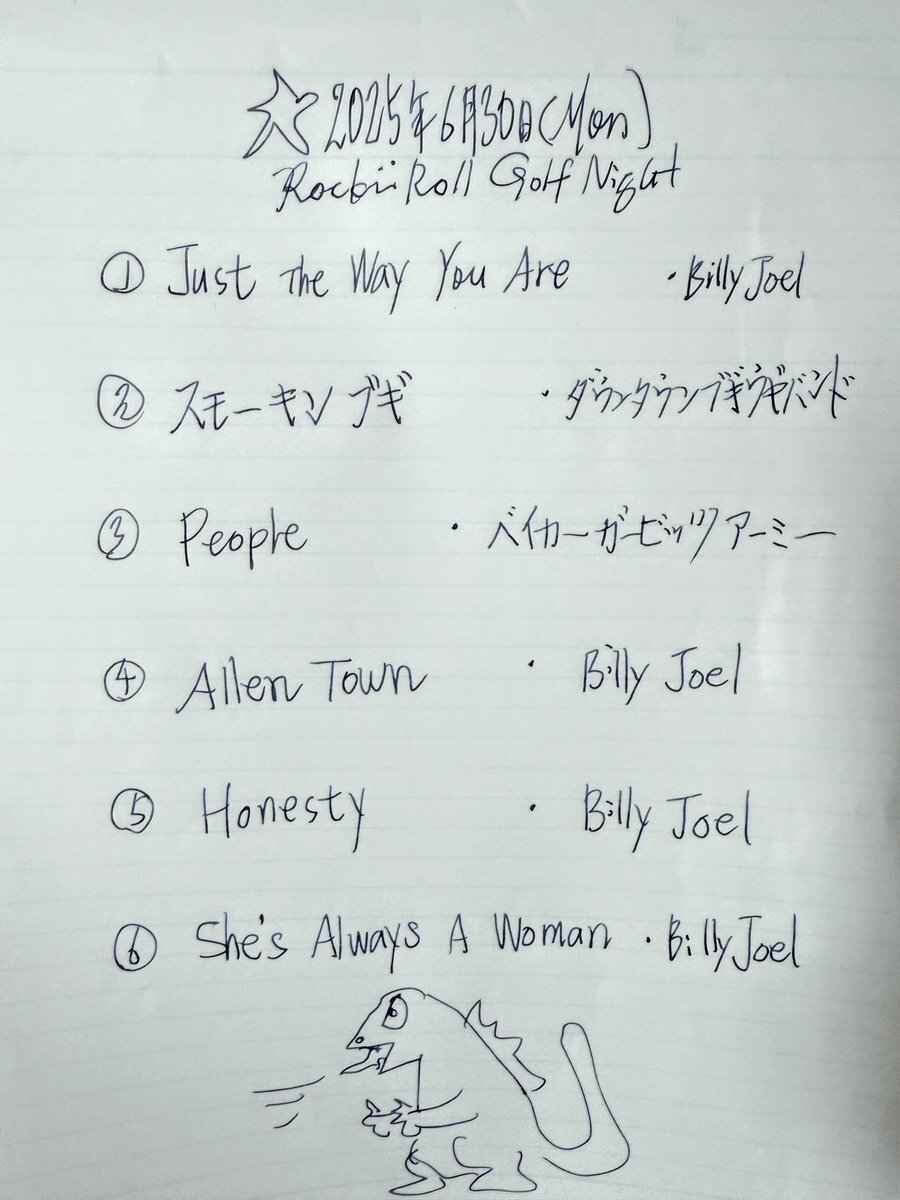 ☆2025年6月30日(Mon)
Rock'n Roll Golf Night
① Just The Way You Are ・Billy Joel
② スモーキンブギ ・ダウンタウンブギウギバンド
③ People ・ベイカーガービッツアーミー
④ Allen Town ・ Billy Joel
⑤ Honesty ・ Billy Joel
⑥ She's Always A Woman ・Billy Joel